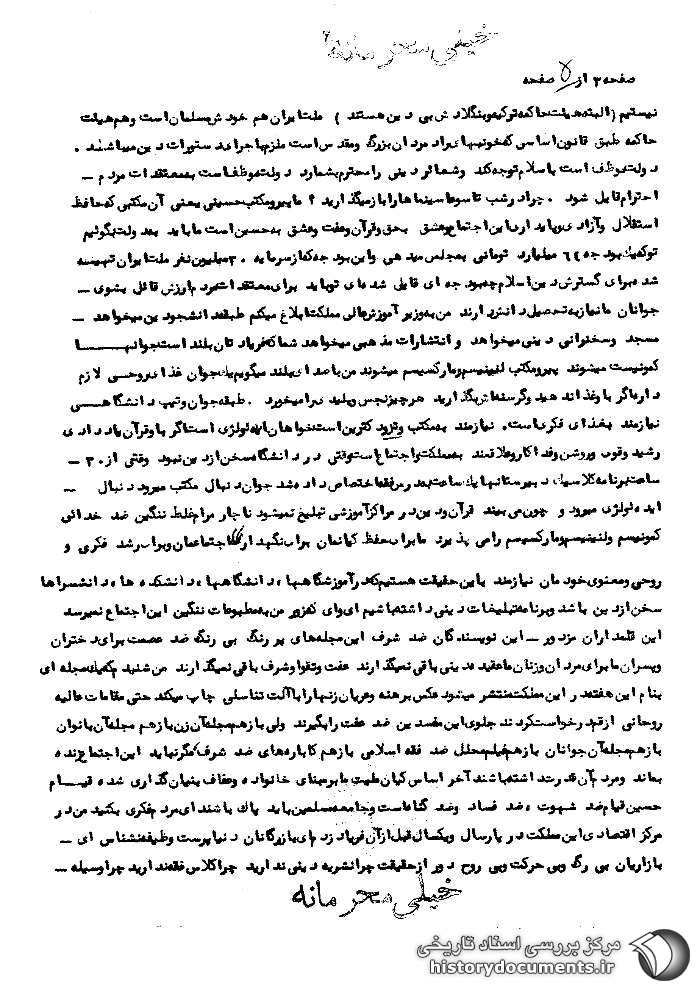 خیلی محرمانه
صفحه ۳ از ۵ صفحه
نیستیم (البته هیئت حاکمه ترکیه وبنگلادش بی دین هستند) ملت ایران هم خودش مسلمان است وهم هیئت
حاکمه طبق قانون اساسی که خونبهای راد مردان بزرگ ومقدس است ملزم باجرای دستورات دین میباشند .
دولت موظف است باسلام توجه کند وشعائر دینی را محترم بشمارد دولت موظف است به معتقدات مردم –
احترام قایل شود . چرا در شب تاسوعا سینماها را باز میگذارید ؟ ما پیرو مکتب حسینی یعنی آن مکتبی که حافظ
استقلال وآزادی وپایداری این اجتماع وعشق بحق وقرآن وعفت وعشق به حسین است ما باید به دولت بگوئیم
تو که یک بودجه ٤٤ میلیارد تومانی به مجلس میدهی واین بودجه که از سرمایه ۳۰ میلیون نفر ملت ایران تهیه
شده برای گسترش دین اسلام چه بودجه ای قایل شده ای تو باید برای معتقدات مردم ارزش قائل بشوی –
جوانان ما نیاز به تحصیل دانش دارند من به وزیر آموزش عالی مملکت ابلاغ میکنم طبقه دانشجو دین میخواهد –
مسجد وسخنرانی دینی میخواهد و انتشارات مذهبی میخواهد شما که فریادتان بلند است جوانها
کمونیست میشوند پیرو مکتب لنینیسم ومارکسیسم میشوند من با صدای بلند میگویم یک جوان غذای روحی لازم
دارد اگر باو غذا ندهید وگرسنه اش بگذارید هر چیز نجس وپلیدی را میخورد . طبقه جوان وتیپ دانشگاهی
نیازمند بغذای فکری است. نیازمند به مکتب و خواهان ایده ئولوژی است اگر باو قرآن یاد دادی
رشید وقوی وروشن وفداکار وعلاقمند به مملکت واجتماع است وقتی در دانشگاه سخن از دین نبود وقتی از ۳۰ –
ساعت برنامه کلاسیک دبیرستانها یک ساعت به درس فقه اختصاص داده شد جوان دنبال مکتب میرود دنبال –
ایده ئولوژی میرود و چون می بیند قرآن ودین در مراکز آموزشی تبلیغ نمیشود ناچار مرام غلط ننگین ضد خدائی
کمونیسم ولنینیسم ومارکسیسم را می پذیرد ما برای حفظ کیانمان برای نگهداری اجتماعمان وبرای رشد فکری و
روحی ومعنوی خودمان نیازمند باین حقیقت هستیم که در آموزشگاهها، دانشگاهها، دانشکده ها، دانشسراها
سخن از دین باشد وبرنامه تبلیغات دینی داشته باشیم ای وای که زور من به مطبوعات ننگین این اجتماع نمیرسد
این قلمداران مزدور – این نویسندگان ضد شرف این مجله های پر رنگ بی رنگ ضد عصمت برای دختران
وپسران ما برای مردان وزنان ما عقیده دینی باقی نمیگذارند عفت وتقوا وشرف باقی نمیگذارند من شنیدم که یک مجله ای
بنام این هفته در این مملکت منتشر میشود عکس برهنه وعریان زنها را با آلت تناسلی چاپ میکند حتی مقامات عالیه
روحانی از قم درخواست کردند جلوی این مفسدین ضد عفت را بگیرند ولی باز هم مجله آن زن باز هم مجله آن بانوان
باز هم مجله آن جوانان باز هم فیلم محلل ضد فقه اسلامی باز هم کاباره های ضد شرف مگر نباید این اجتماع زنده
بماند ومردم آن قدرت داشته باشند آخر اساس کیان ملیت ما بر مبنای خانواده وعفاف بنیان گذاری شده قیام
حسین قیام ضد شهوت ، ضد فساد وضد گناه است وجامعه مسلمین باید پاک باشند ای مردم فکری بکنید من در
مرکز اقتصادی این مملکت در پارسال ویکسال قبل از آن فریاد زدم ای بازرگانان دنیا پرست وظیفه نشناس ای –
بازاریان بی رگ وبی حرکت وبی روح دور از حقیقت چرا نشریه دینی ندارید چرا کلاس فقه ندارید چرا وسیله –
خیلی محرمانه
مرکز بررسی اسناد تاریخی
historydocuments.ir